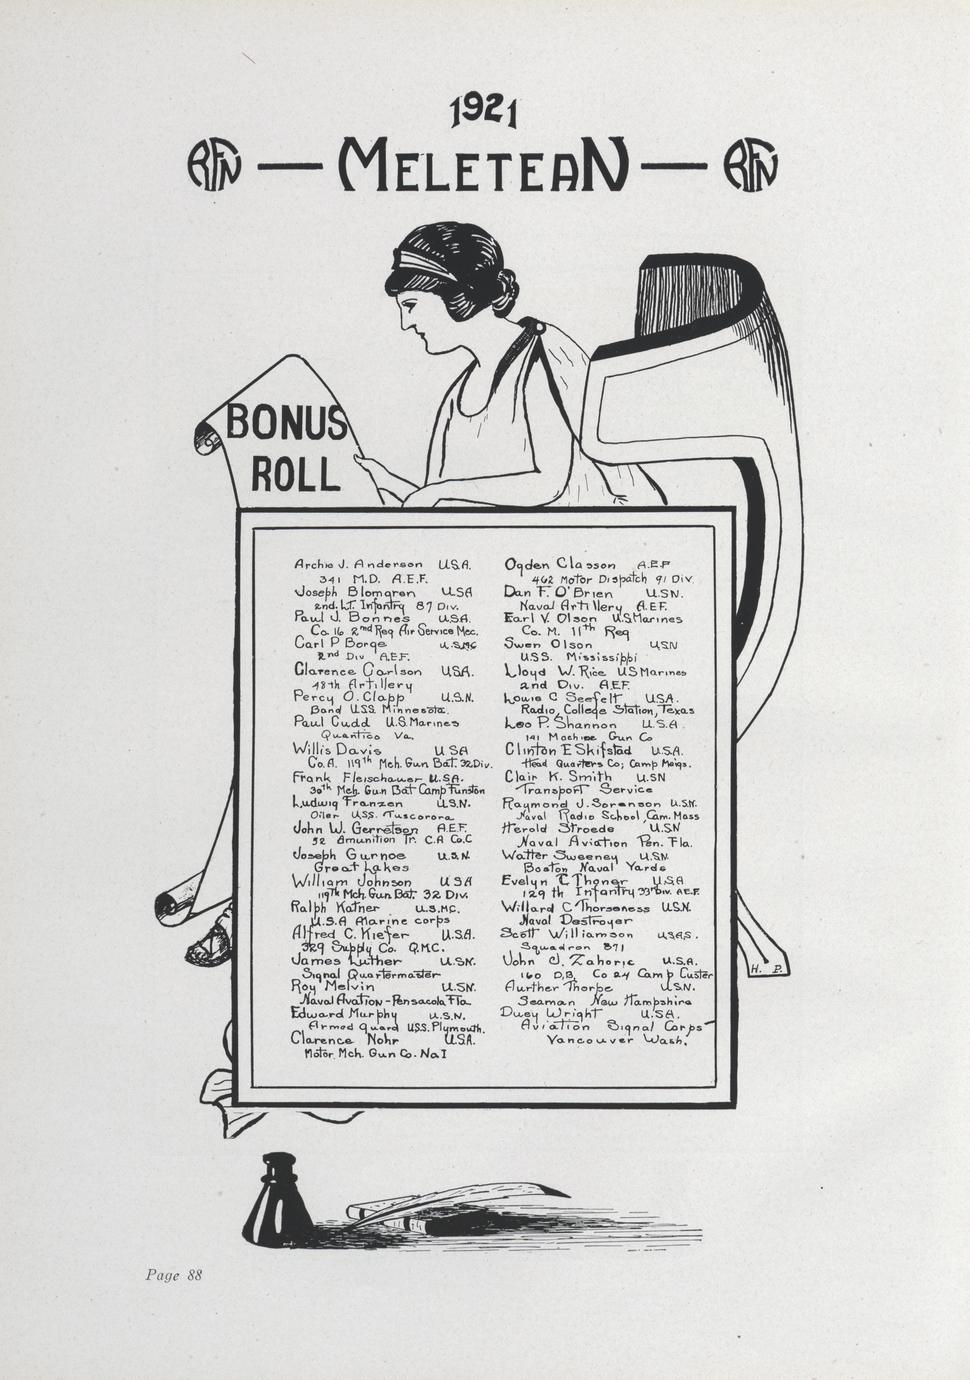 1921
RFN — MELETEAN — RFN
BONUS
ROLL
Archie J. Anderson U.S.A.
341 M.D. A.E.F.
Joseph Blomgren U.S.A
2nd. LT. Infantry 87 Div.
Paul J. Bonnes U.S.A.
Co. 16 2nd Reg Air Service Mec.
Carl P Borge U.S.MC
2nd Div A.E.F.
Clarence Carlson USA.
48th Artillery
Percy O. Clapp U.S.N.
Band U.S.S. Minnesota.
Paul Cudd U.S. Marines
Quantico Va.
Willis Davis U S A
Co. A. 119th Mch. Gun Bat. 32 Div.
Frank Fleischauer U.S.A.
30th Mch. Gun Bat Camp Funston
Ludwig Franzen U.S.N.
Oiler U.S.S. Tuscorora
John W. Gerretson A.E.F.
52 Amunition Tr. C.A Co.C
Joseph Gurnoe U.S.N.
Great Lakes
William Johnson U S A
119th Mch. Gun Bat. 32 Div.
Ralph Katner U.S.MC.
U.S.A Marine corps
Alfred C. Kiefer U.S.A.
329 Supply Co. Q.MC.
James Luther U.S.N.
Signal Quartermaster
Roy Melvin U.S.N.
Naval Avation - Pensacola Fla.
Edward Murphy U.S.N.
Armed Guard U.S.S. Plymouth.
Clarence Nohr U.S.A.
Motor Mch. Gun Co. No.1
Ogden Classon A.E.F
462 Motor Dispatch 91 Div.
Dan F. O'Brien U.S.N.
Naval Artillery A.E.F.
Earl V. Olson U.S Marines
Co. M. 11th Reg
Swen Olson U.S.N
U.S.S. Mississippi
Lloyd W. Rice U S Marines
2nd Div. A.E.F.
Louie C Seefelt U.S.A.
Radio, College Station, Texas
Leo P. Shannon U.S.A.
141 Machine Gun Co
Clinton E Skifstad U.S.A.
Head Quarters Co; Camp Meigs.
Clair K. Smith U.S.N
Transport Service
Raymond J. Sorenson U.S.N.
Naval Radio School, Cam. Mass
Herold Stroede U.S.N
Naval Aviation Pen. Fla.
Walter Sweeney U.S.N.
Boston Naval Yards
Evelyn C Thoner U.S.A
129 th Infantry 33rd Div. A.E.F.
Willard C Thorseness U.S.N.
Naval Destroyer
Scott Williamson U.S.A.S.
Squadron 871
John J. Zahoric U.S.A.
160 D.B. Co 24 Camp Custer
Aurther Thorpe U.S.N.
Seaman New Hampshire
Duey Wright U.S.A.
Aviation Signal Corps
Vancouver Wash.
H. P.
Page 88